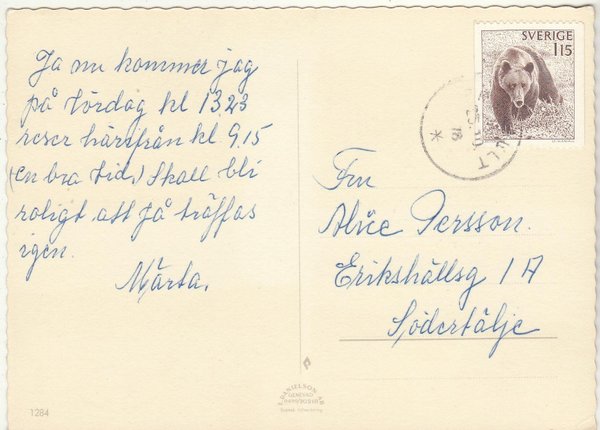 Ja nu kommer jag
på Lördag kl 13.23
reser härifrån kl 9.15
(en bra tid) Skall bli
roligt att få träffas
igen.
Märta.
SVERIGE
1.15
ULT
78
Fru
Alice Persson.
Erikshällsg 1 A
Södertälje
DANIELSON
1284